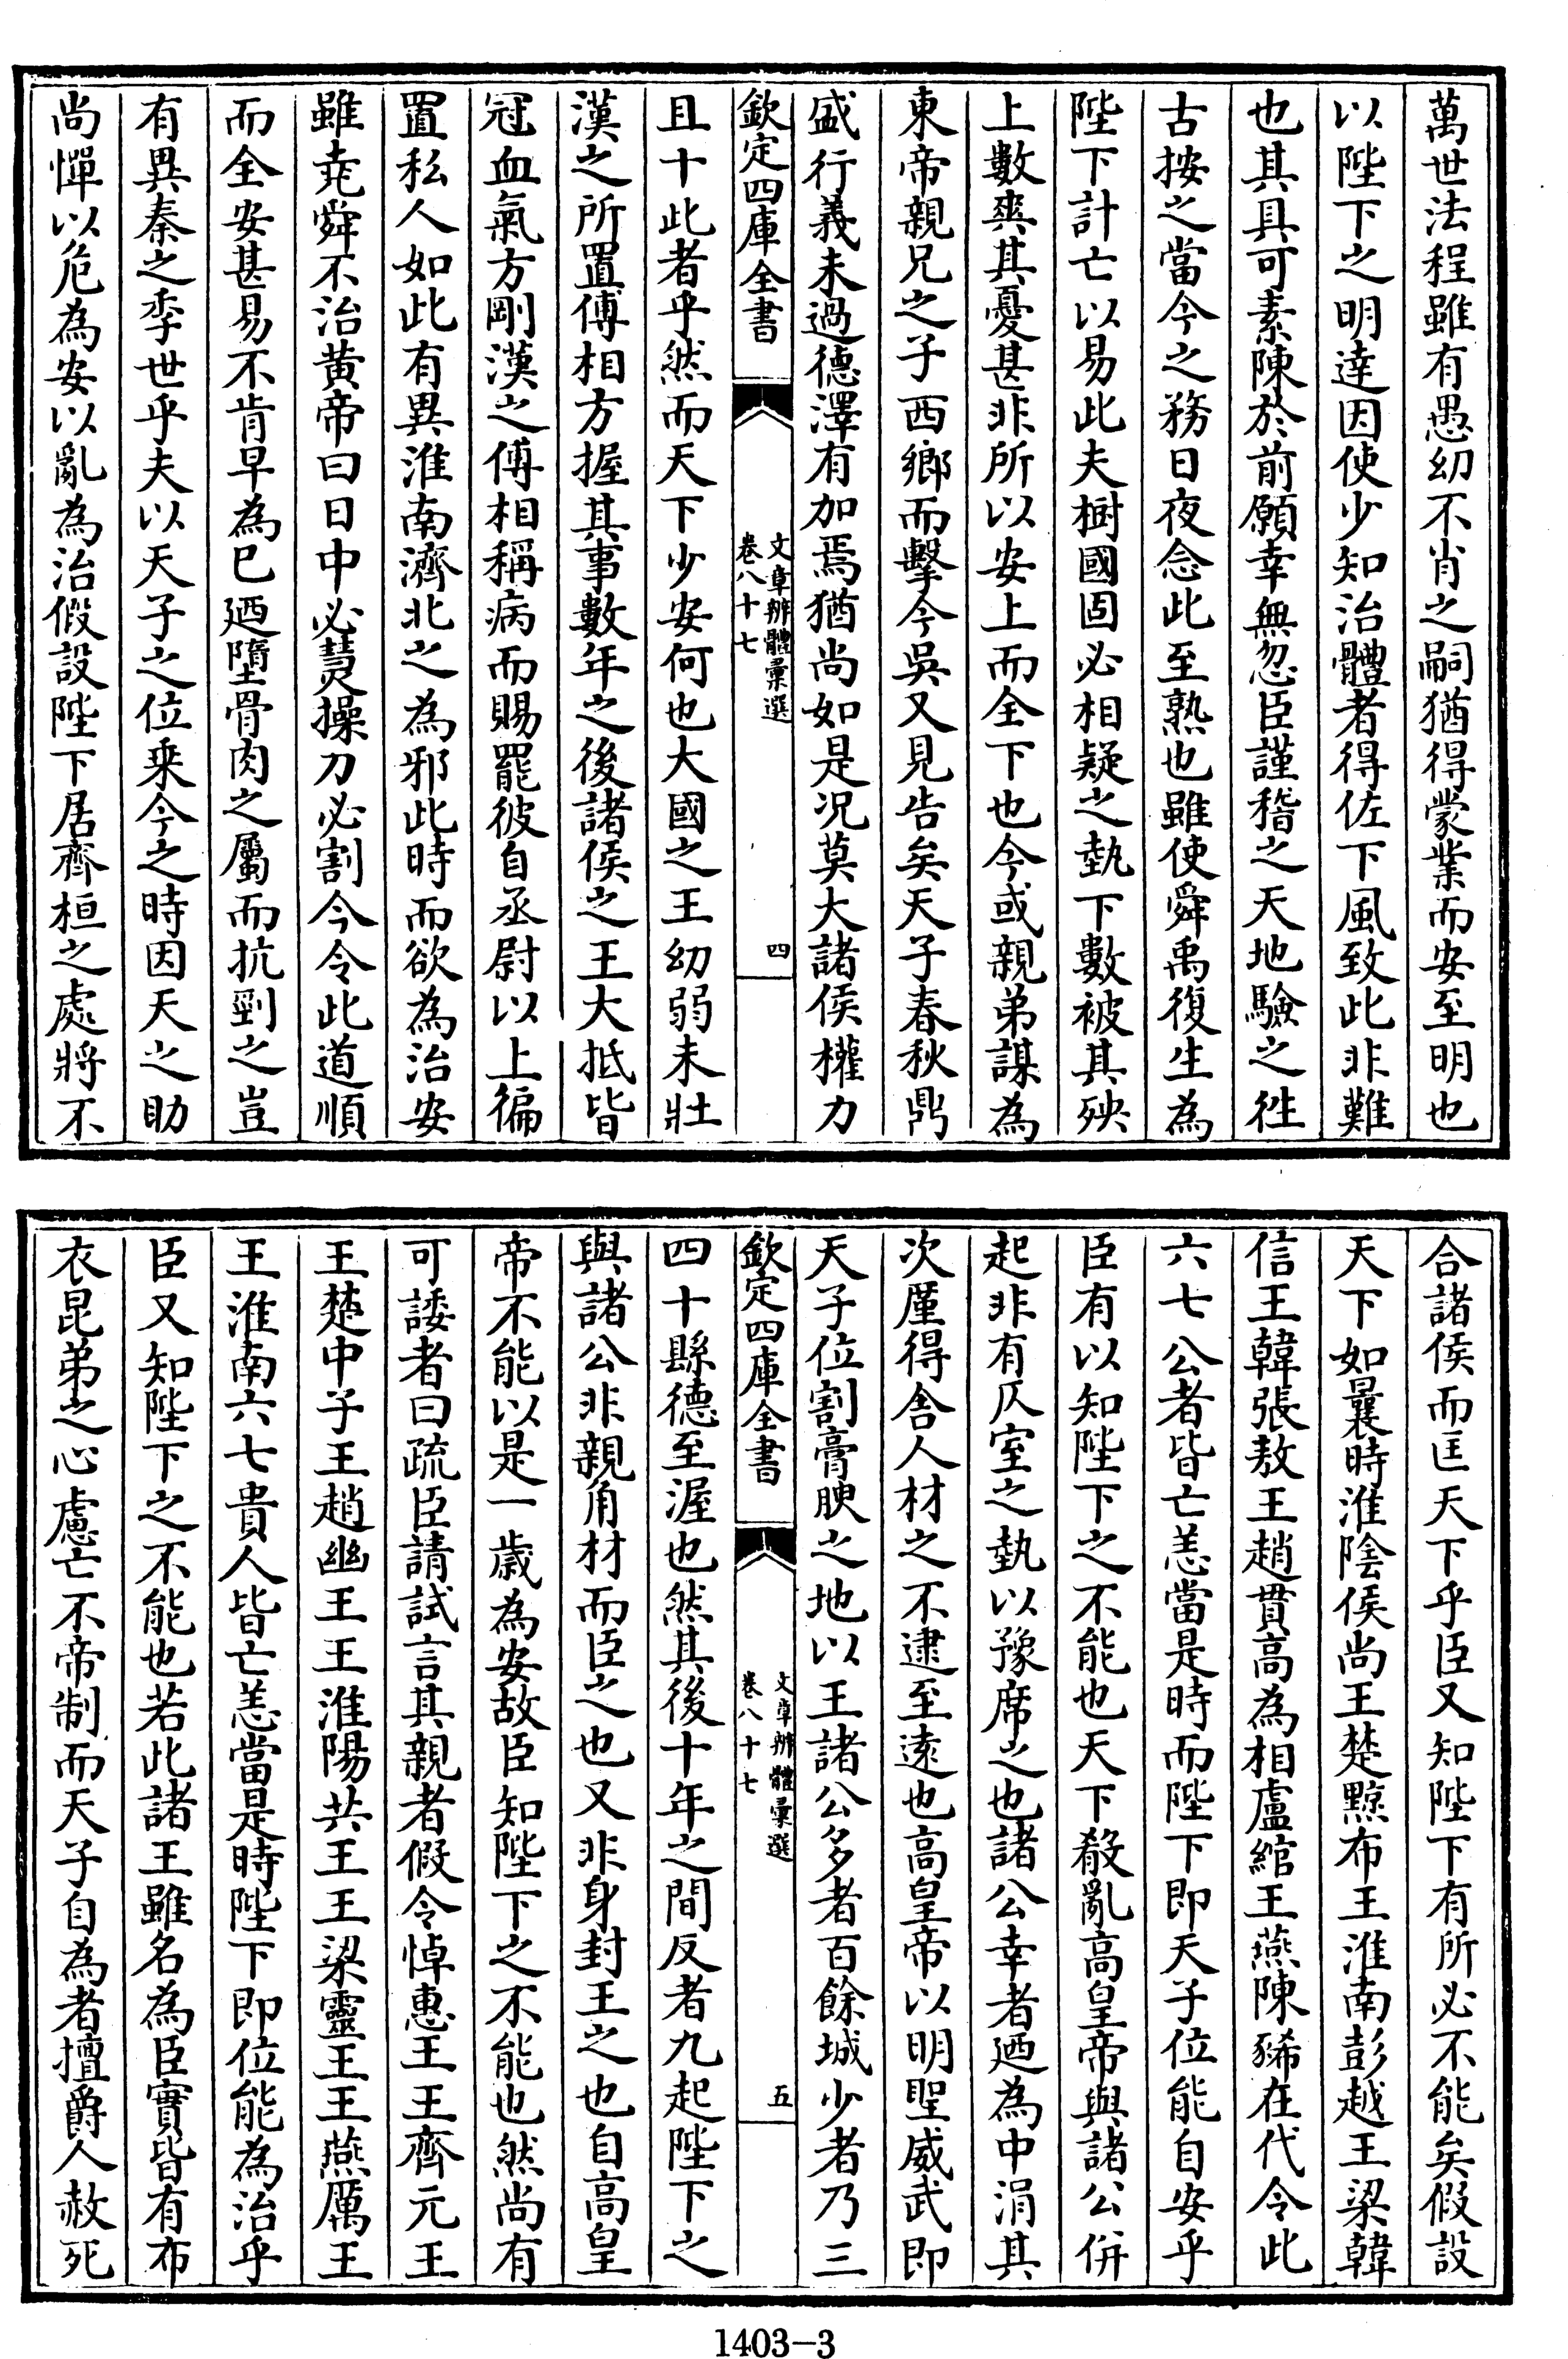 萬世法程雖有愚幼不肖之嗣猶得蒙業而安至明也
以陛下之明達因使少知治體者得佐下風致此非難
也其具可素陳於前願幸無忽臣謹稽之天地驗之往
古按之當今之務日夜念此至熟也雖使舜禹復生為
陛下計亡以易此夫樹國固必相疑之埶下數被其殃
上數爽其憂甚非所以安上而全下也今或親弟謀為
東帝親兄之子西鄉而擊今吳又見告矣天子春秋鼎
盛行義未過德澤有加焉猶尚如是況莫大諸侯權力
欽定四庫全書
文章辨體彙選
卷八十七
四
且十此者乎然而天下少安何也大國之王幼弱未壯
漢之所置傅相方握其事數年之後諸侯之王大抵皆
冠血氣方剛漢之傅相稱病而賜罷彼自丞尉以上徧
置私人如此有異淮南濟北之為邪此時而欲為治安
雖堯舜不治黃帝曰日中必熭操刀必割今令此道順
而全安甚易不肯早為已廼墮骨肉之屬而抗剄之豈
有異秦之季世乎夫以天子之位乗今之時因天之助
尚憚以危為安以亂為治假設陛下居齊桓之處將不
合諸侯而匡天下乎臣又知陛下有所必不能矣假設
天下如曩時淮陰侯尚王楚黥布王淮南彭越王梁韓
信王韓張敖王趙貫高為相盧綰王燕陳豨在代令此
六七公者皆亡恙當是時而陛下即天子位能自安乎
臣有以知陛下之不能也天下殽亂高皇帝與諸公併
起非有仄室之埶以豫席之也諸公幸者廼為中涓其
次厪得舍人材之不逮至遠也高皇帝以明聖威武即
天子位割膏腴之地以王諸公多者百餘城少者乃三
欽定四庫全書
文章辨體彙選
卷八十七
五
四十縣德至渥也然其後十年之間反者九起陛下之
與諸公非親角材而臣之也又非身封王之也自高皇
帝不能以是一歲為安故臣知陛下之不能也然尚有
可諉者曰疏臣請試言其親者假令悼惠王王齊元王
王楚中子王趙幽王王淮陽共王王梁靈王王燕厲王
王淮南六七貴人皆亡恙當是時陛下即位能為治乎
臣又知陛下之不能也若此諸王雖名為臣實皆有布
衣昆弟之心慮亡不帝制而天子自為者擅爵人赦死
1403-3